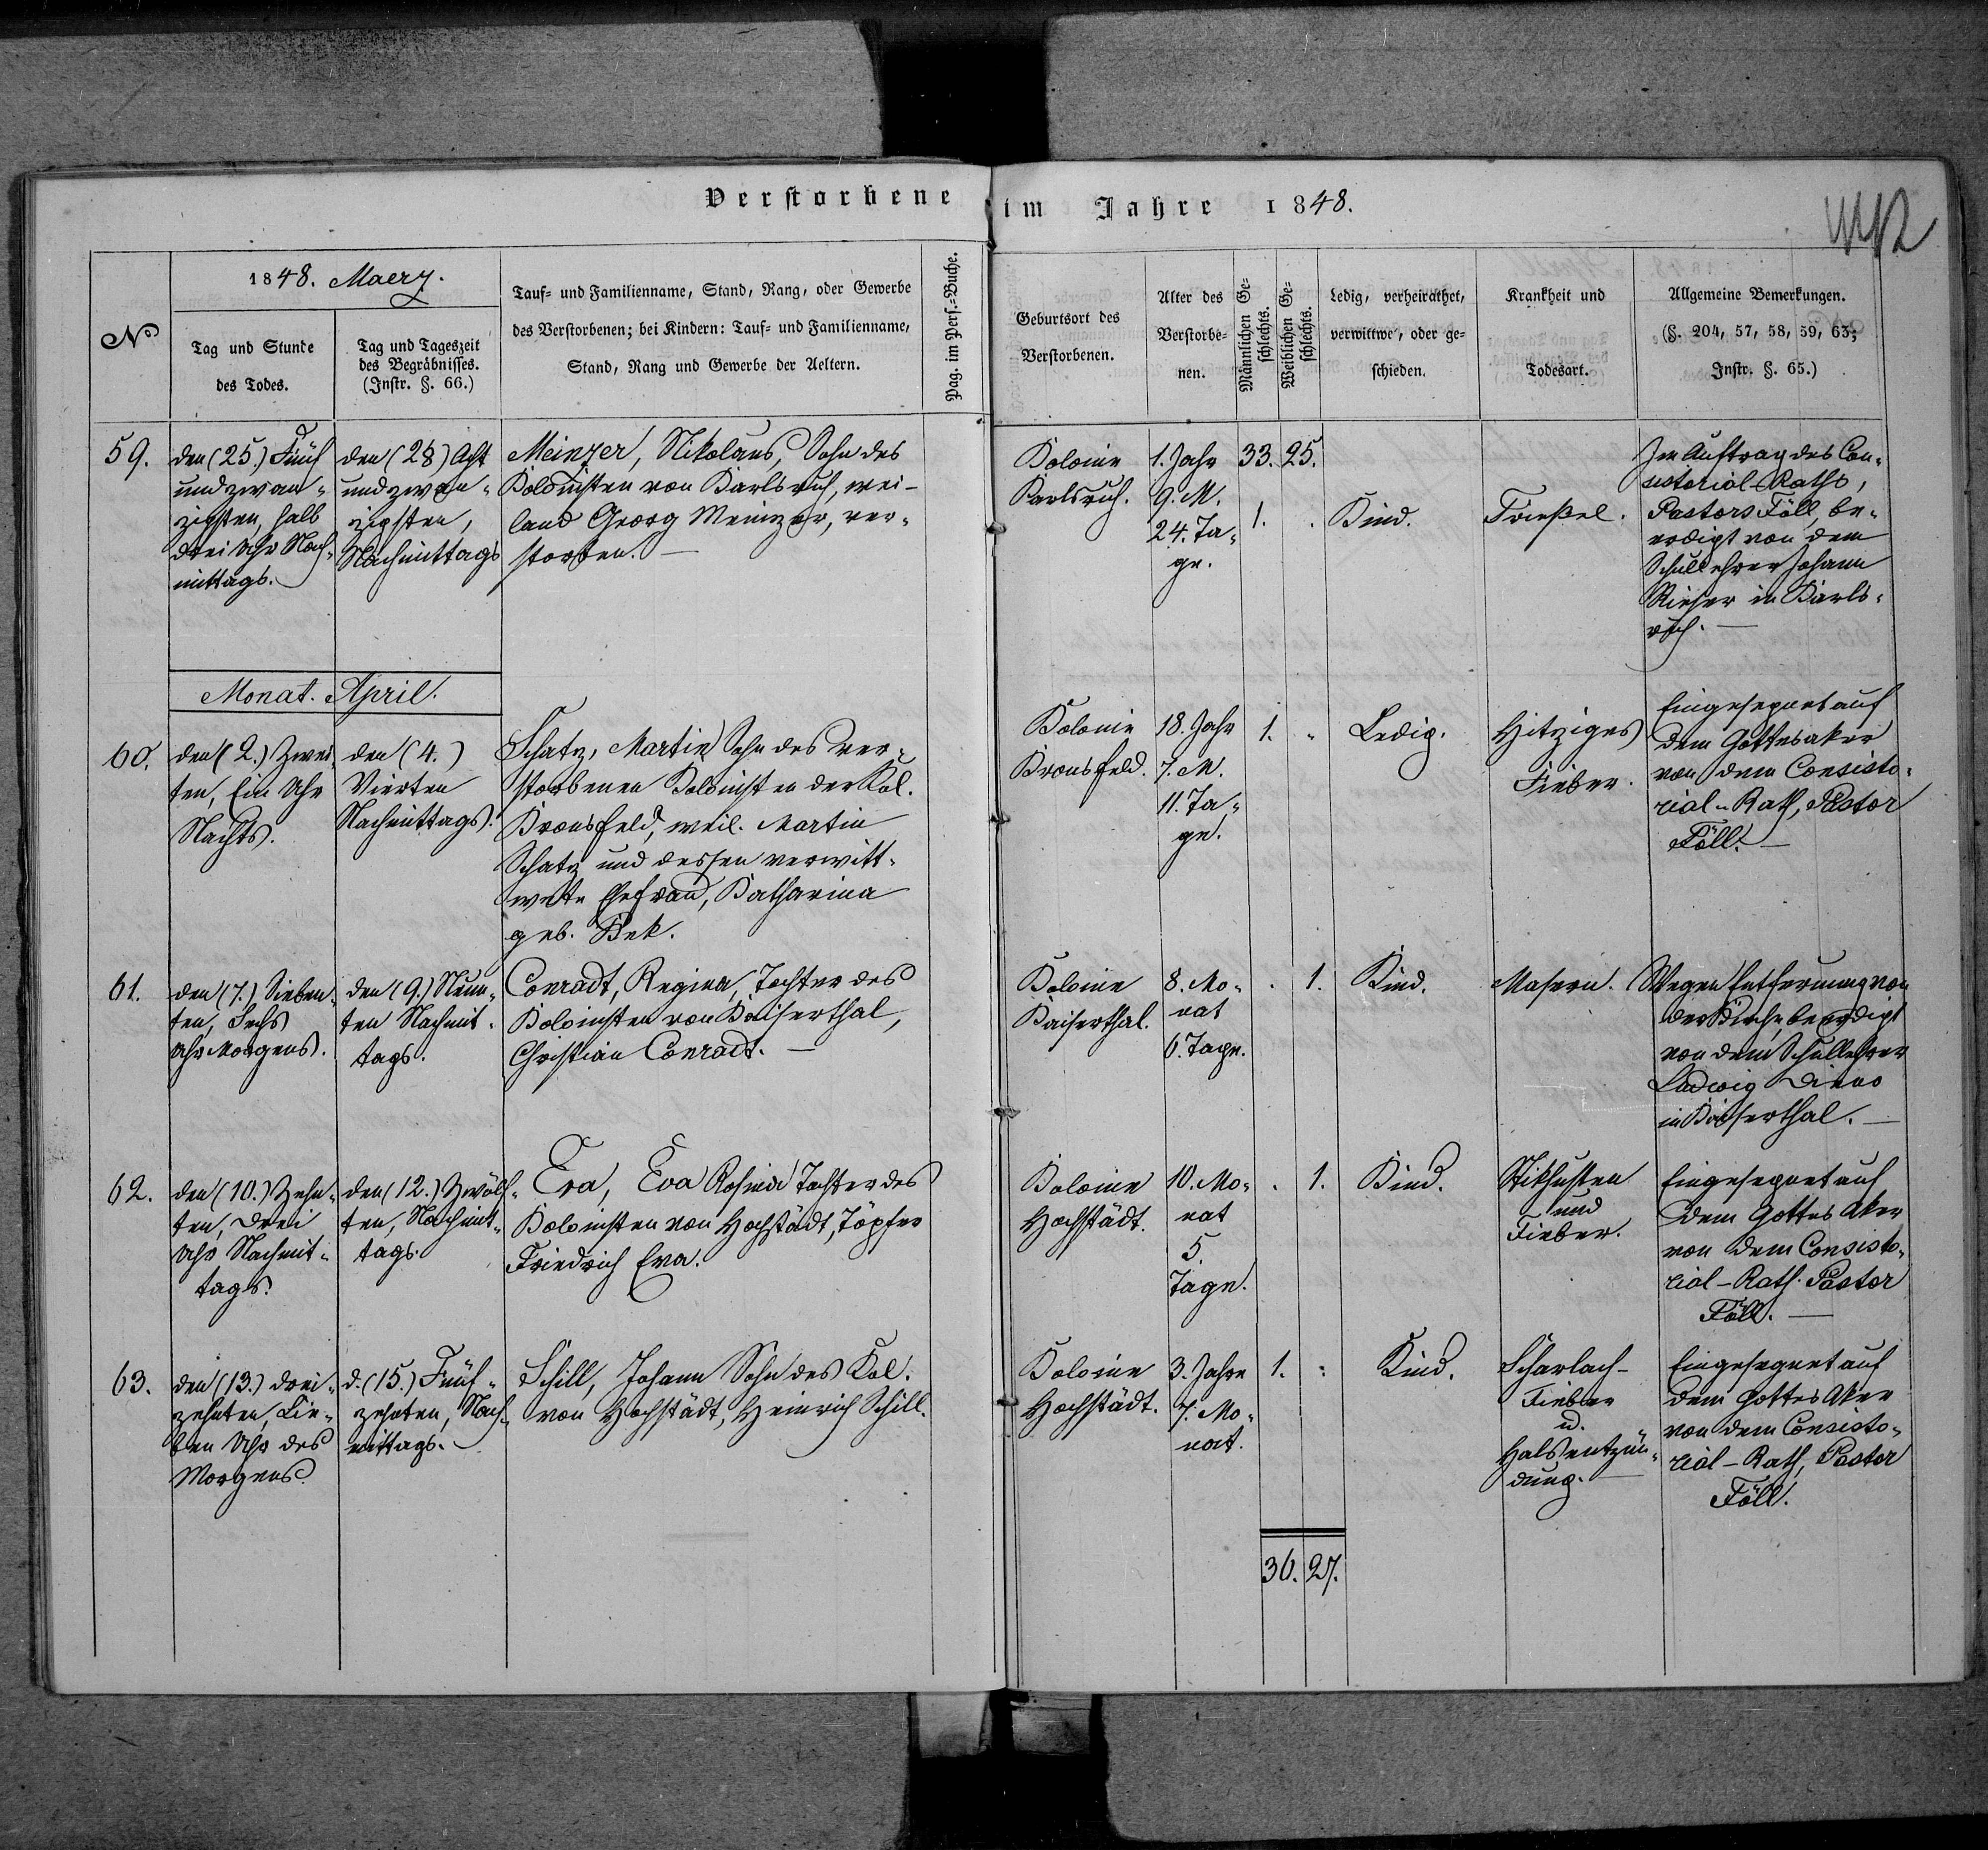 Verstorbene im Jahre 1848.
No
1848. Maerz.
Tag und Stunde
des Todes.
Tag und Tageszeit
des Begräbnisses.
(Instr. §. 66.)
Tauf- und Familienname, Stand, Rang, oder Gewerbe
des Verstorbenen; bei Kindern: Tauf- und Familienname,
Stand, Rang und Gewerbe der Aeltern.
Pag. im Pers.-Buche.
Geburtsort des
Verstorbenen.
Alter des
Verstorbe-
nen.
Männlichen Ge-
schlechts.
Weiblichen Ge-
schlechts.
Ledig, verheirathet,
verwittwe', oder ge-
schieden.
Krankheit und
Todesart.
Allgemeine Bemerkungen.
(§. 204, 57, 58, 59, 63;
Instr. §. 65.)
59.
den (25.) Fünf
und zwan-
zigsten, halb
drei Uhr Nach-
mittags.
den (28) Acht
und zwan-
zigsten,
Nachmittags
Meinzer, Nikolaus, Sohn des
Kolonisten von Karlsruh, wei-
land Georg Meinzer, ver-
storben. —
Kolonie
Karlsruh.
1. Jahr
9. M.
24. Ta-
ge.
33. 25.
1.
Kind.
Frießel.
Im Auftrag des Con-
sistorial-Raths,
Pastors Föll, be-
erdigt von dem
Schullehrer Johann
Rieher in Karls-
ruh. —
Monat. April.
60.
den (2.) Zwei-
ten, Ein Uhr
Nachts.
den (4.)
Vierten
Nachmittags.
Schatz, Martin Sohn des ver-
storbenen Kolonisten der Kol.
Kronsfeld, weil. Martin
Schatz und dessen verwitt-
wete Ehefrau, Katharina
geb. Bek.
Kolonie
Kronsfeld.
18. Jahr
7. M.
11. Ta-
ge.
1. "
Ledig.
Hitziges
Fieber.
Eingesegnet auf
dem Gottesaker
von dem Consisto-
rial-Rath, Pastor
Föll. —
61.
den (7.) Sieben-
ten, Sechs
Uhr Morgens.
den (9.) Neun-
ten Nachmit-
tags.
Conradt, Regina, Tochter des
Kolonisten von Kaiserthal,
Christian Conradt. —
Kolonie
Kaiserthal.
8. Mo-
nat
6. Tage.
. 1.
Kind.
Masern.
Wegen Entfernung von
der Kirche beerdigt
von dem Schullehrer
Ludwig
in Kaiserthal. —
62.
den (10.) Zehn-
ten, Drei
Uhr Nachmit-
tags.
den (12.) Zwölf-
ten, Nachmit-
tags.
Eva, Eva Rosina Tochter des
Kolonisten von Hochstädt, Töpfer
Friedrich Eva.
Kolonie
Hochstädt.
10. Mo-
nat
5.
Tage.
. 1.
Kind.
Stikhusten
und
Fieber.
Eingesegnet auf
dem Gottes Aker
von dem Consisto-
rial-Rath. Pastor
Föll. —
63.
den (13.) drei-
zehnten, Sie-
ben Uhr des
Morgens.
d. (15.) Fünf-
zehnten, Nach-
mittags.
Schill, Johann Sohn des Kol.
von Hochstädt, Heinrich Schill.
Kolonie
Hochstädt.
3. Jahre
7. Mo-
nat.
1. :
Kind.
Scharlach-
Fieber
u.
Halsentzün-
dung. —
Eingesegnet auf
dem Gottes Aker
von dem Consisto-
rial-Rath, Pastor
Föll.
36. 27.